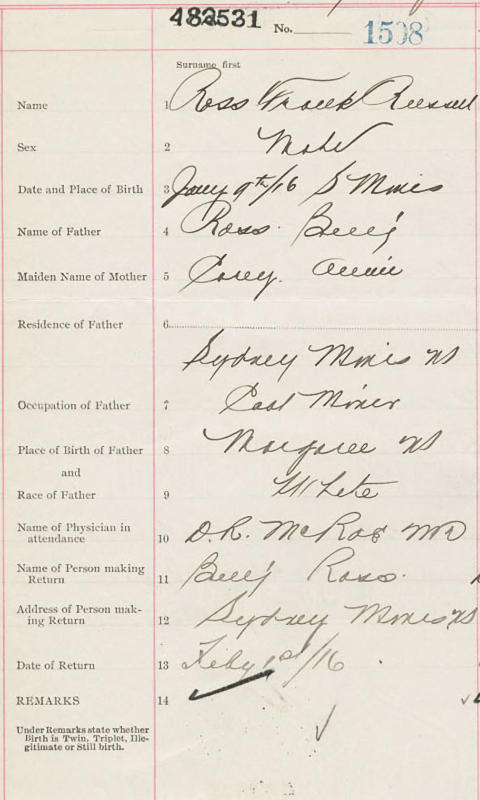 482531 No. 1508
Surname first
Name 1 Ross Frank Russell
Sex 2 Male
Date and Place of Birth 3 Jany 9th/16 S Mines
Name of Father 4 Ross. Benj
Maiden Name of Mother 5 Corey. Annie
Residence of Father 6
Sydney Mines NS
Occupation of Father 7 Coal Miner
Place of Birth of Father 8 Margaree NS
and
Race of Father 9 White
Name of Physician in
attendance 10 D.R. McRae MD
Name of Person making
Return 11 Benj Ross.
Address of Person mak-
ing Return 12 Sydney Mines NS
Date of Return 13 Feby 1st/16
REMARKS 14
Under Remarks state whether
Birth is Twin, Triplet, Ille-
gitimate or Still birth.